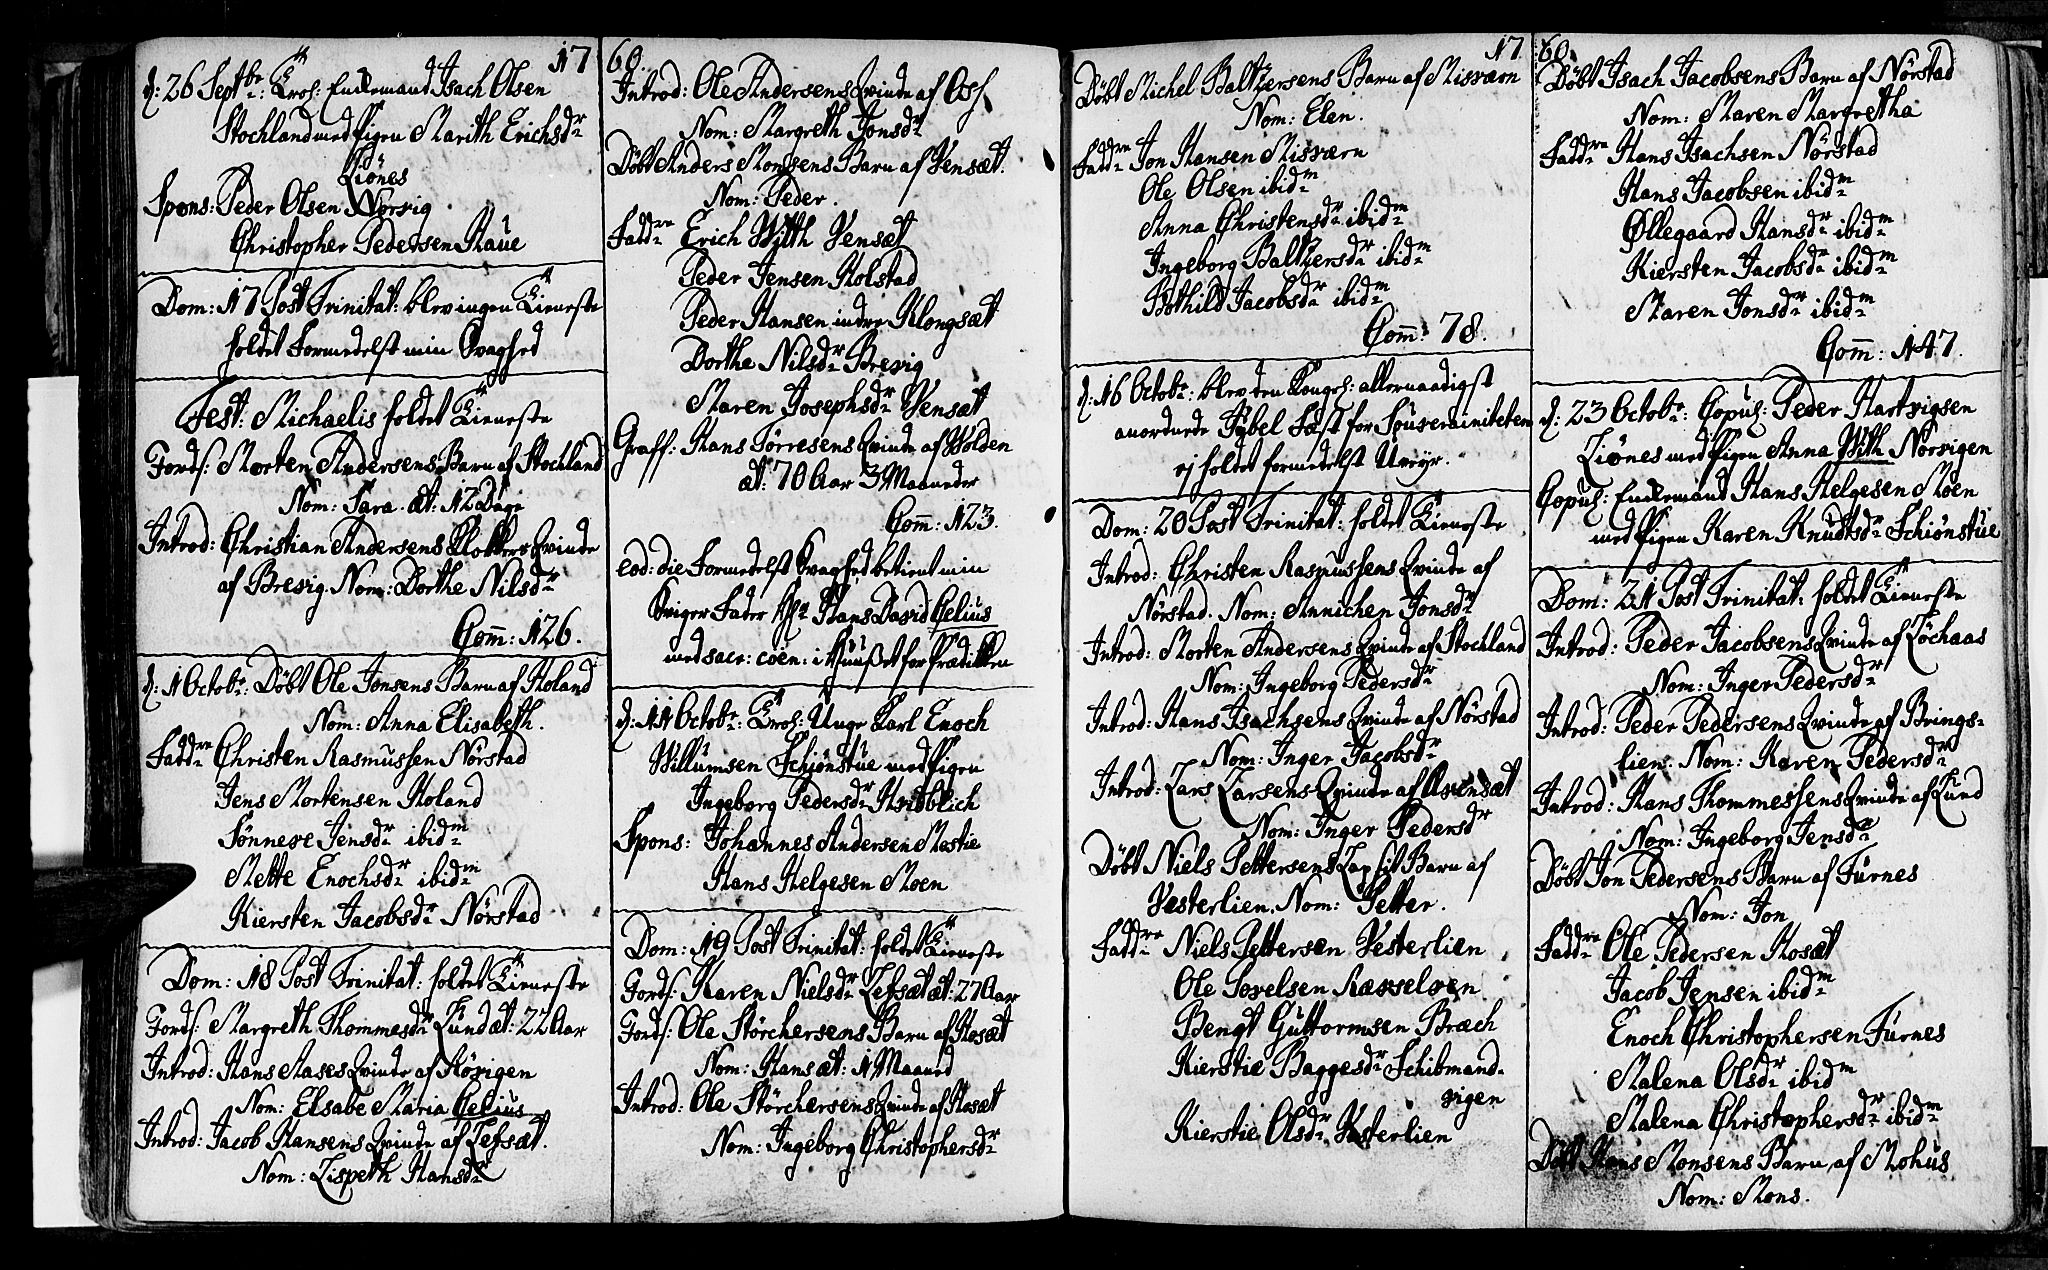 17
d: 26 Septbr: Trol: Enckemand Isach Olsen
Stochland med Pigen Marith Erichsdr
Liönes
Spons: Peder Olsen Norvig
Christopher Pedersen Staue
Dom: 17 Post Trinitat: blev ingen Tieneste
holdet Formedelst min Svaghed
Fest: Michaelis holdet Tieneste
Jords: Morten Andersens Barn af Stochland
Nom: Sara. æt: 12 Dage
Introd: Christian Andersens Klokkers Qvinde
af Brevig Nom: Dorthe Nilsdr
Com: 126.
d: 1 Octobr: Döbt Ole Jonsens Barn af Holand
Nom: Anna Elisabeth.
Faddre Christen Rasmussen Nörstad
Jens Mortensen Holand
Sönneve Jensdr ibidm
Mette Enochsdr ibidm
Kiersten Jacobsdr Nörstad
Dom: 18 Post Trinitat: holdet Tieneste
Jords: Margreth Thommesdr Lund æt: 22 Aar
Introd: Hans Aases Qvinde af Hövigen
Nom: Elsabe Maria Celius
Introd: Jacob Hansens Qvinde af Lefsæt.
Nom: Lispeth Hansdr
60.
Introd: Ole Andersens Qvinde af
Nom: Margreth Jonsdr
Döbt Anders Monsens Barn af Vensæt.
Nom: Peder.
Faddre Erich With Vensæt
Peder Jensen Holstad
Peder Hansen indre Klongsæt
Dorthe Nilsdr Brevig
Maren Josephsdr Vensæt
Graff: Hans Törresens Qvinde af Wolden
æt: 70 Aar 3 Maaneder
Com: 123.
eod: die Formedelst Svaghed betient min
Sviger Fader Hr Hans David Celius
med sacr: coen: i Huuset for Prædikken
d: 11 Octobr: Trol: Unge Karl Enoch
Willumsen Schiönstue med Pigen
Ingeborg Pedersdr Hvidblich
Spons: Johannes Andersen Mastie
Hans Helgesen Moen
Dom: 19 Post Trinitat: holdet Tieneste
Jords: Karen Nielsdr Lefsæt æt: 27 Aar
Jords: Ole Störchersens Barn af Hosæt
Nom: Hans æt: 1 Maaned
Introd: Ole Störchersens Qvinde af Hosæt
Nom: Ingeborg Christophersdr
17
Döbt Michel Baltzersens Barn af Misværn
Nom: Elen.
Faddre Jon Hansen Misværn
Ole Olsen ibidm
Anna Christensdr ibidm
Ingeborg Baltzersdr ibidm
Bothild Jacobsdr ibidm
Com: 78.
d: 16 Octobr: blev den Kongel: allernaadigst
anordnede Jubel Fæst for Souverainiteten
ej holdet formedelst Uveyr.
Dom: 20 Post Trinitat: holdet Tieneste
Introd: Christen Rasmussens Qvinde af
Nörstad. Nom: Annichen Jonsdr
Introd: Morten Andersens Qvinde af Stochland
Nom: Ingeborg Pedersdr
Introd: Hans Isachsens Qvinde af Nörstad
Nom: Inger Jacobsdr
Introd: Lars Larsens Qvinde af Arensæt
Nom: Inger Pedersdr
Döbt Niels Pettersens Barn af
Vesterlien. Nom: Petter.
Faddre Niels Pettersen Vesterlien
Ole Povelsen Kasselven
Bengt Guttormsen Bræch
Kierstie Baggesdr Schibmand-
vigen
Kierstie Olsdr Vesterlien
60.
Döbt Isach Jacobsens Barn af Nörstad
Nom: Maren Margretha
Faddre Hans Isachsen Nörstad
Hans Jacobsen ibidm
Øllegaard Hansdr ibidm
Kiersten Jacobsdr ibidm
Maren Jonsdr ibidm
Com: 147.
d: 23 Octobr: Copul: Peder Hartvigsen
Liönes med Pigen Anna With Norvigen
Copul: Enckemand Hans Helgesen Moen
med Pigen Karen Knudtsdr Schiönstue
Dom: 21 Post Trinitat: holdet Tieneste
Introd: Peder Jacobsens Qvinde af Löchaas
Nom: Inger Pedersdr
Introd: Peder Pedersens Qvinde af Brings-
lien. Nom: Karen Pedersdr
Introd: Hans Thommesens Qvinde af Lund
Nom: Ingeborg Jensdr
Döbt Jon Pedersens Barn af Furnes
Nom: Jon
Faddre Ole Pedersen Hosæt
Jacob Jensen ibidm
Enoch Christophersen Furnes
Malena Olsdr ibidm
Malena Christophersdr ibidm
Döbt Hans Monsens Barn af Mohus
Nom: Mons.